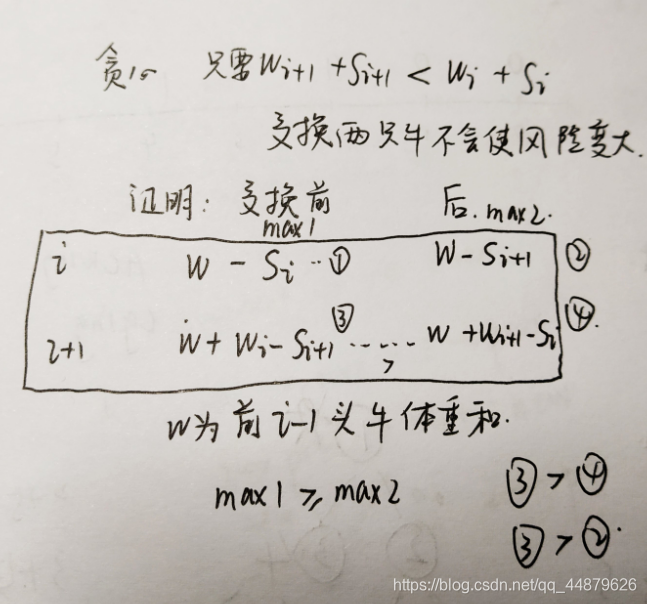 贪心 只要 Wi+1 + Si+1 < Wi + Si
交换两只牛不会使风险变大.
证明: 交换前 后. max2.
max1
i W - Si ..① W - Si+1 ②
i+1 W + Wi - Si+1 ③ ...... > W + Wi+1 - Si ④.
W为前i-1头牛体重和.
max1 ⩾ max2 ③ > ④
③ > ②.
https://blog.csdn.net/qq_44879626